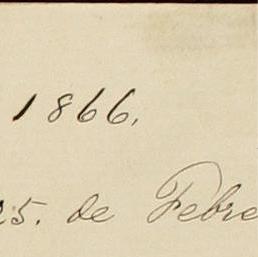 1866.
25. de Febre